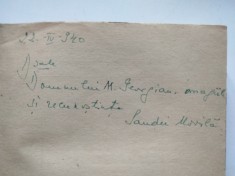 22-IV-940
D-sale
Domnului M. Georgian, omagiile
și recunoștința
Sandu Movilă